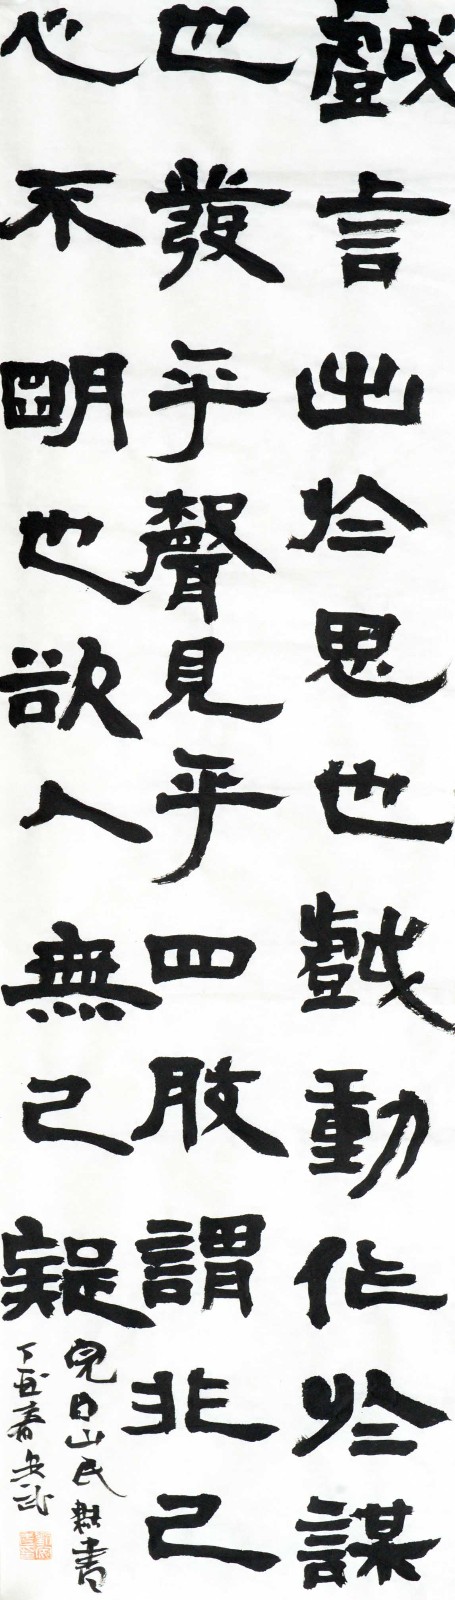 戲言出於思也戲動作於謀
也發乎聲見乎四肢謂非己
心不明也欲人無己疑
山民
書
丁酉春